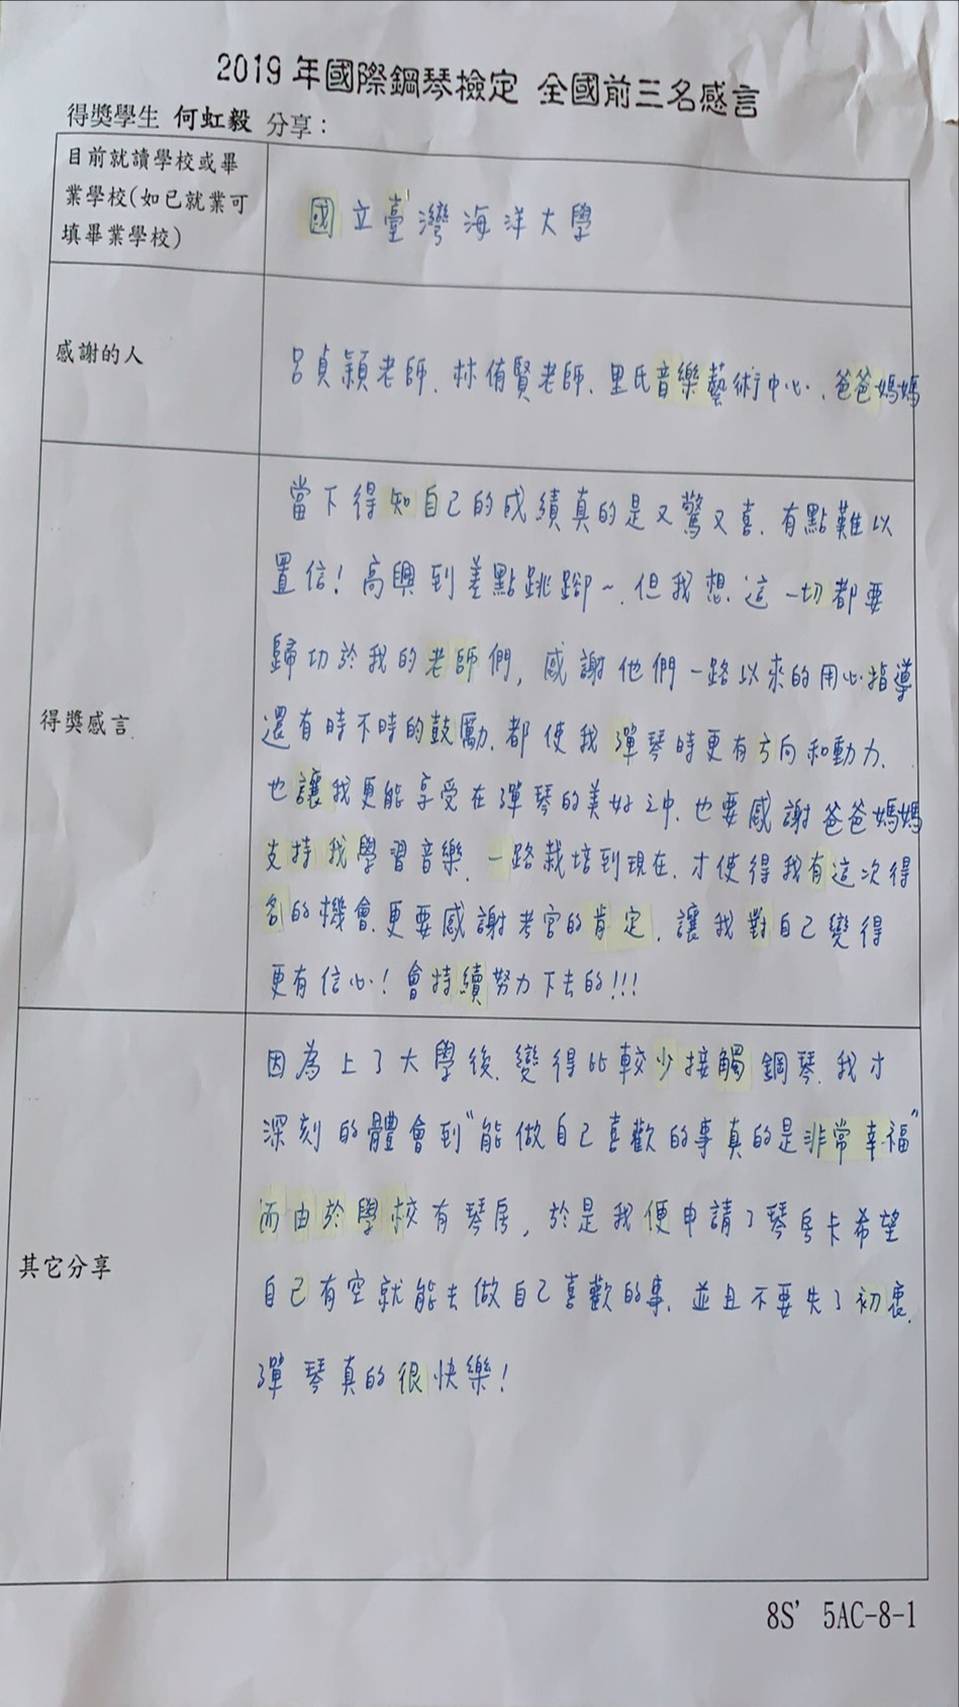 2019 年國際鋼琴檢定 全國前三名感言
得獎學生 何虹毅 分享：
目前就讀學校或畢
業學校(如已就業可
填畢業學校)
國立臺灣海洋大學
感謝的人
呂貞穎老師、林侑賢老師、里氏音樂藝術中心、爸爸媽媽
得獎感言
當下得知自己的成績真的是又驚又喜、有點難以
置信！高興到差點跳腳~、但我想、這一切都要
歸功於我的老師們，感謝他們一路以來的用心指導
還有時不時的鼓勵、都使我彈琴時更有方向和動力、
也讓我更能享受在彈琴的美好之中、也要感謝爸爸媽媽
支持我學習音樂、一路栽培到現在、才使得我有這次得
名的機會、更要感謝考官的肯定、讓我對自己變得
更有信心！會持續努力下去的!!!
其它分享
因為上了大學後、變得比較少接觸鋼琴、我才
深刻的體會到"能做自己喜歡的事真的是非常幸福"
而由於學校有琴房，於是我便申請了琴房卡希望
自己有空就能去做自己喜歡的事、並且不要失了初衷、
彈琴真的很快樂！
8S' 5AC-8-1